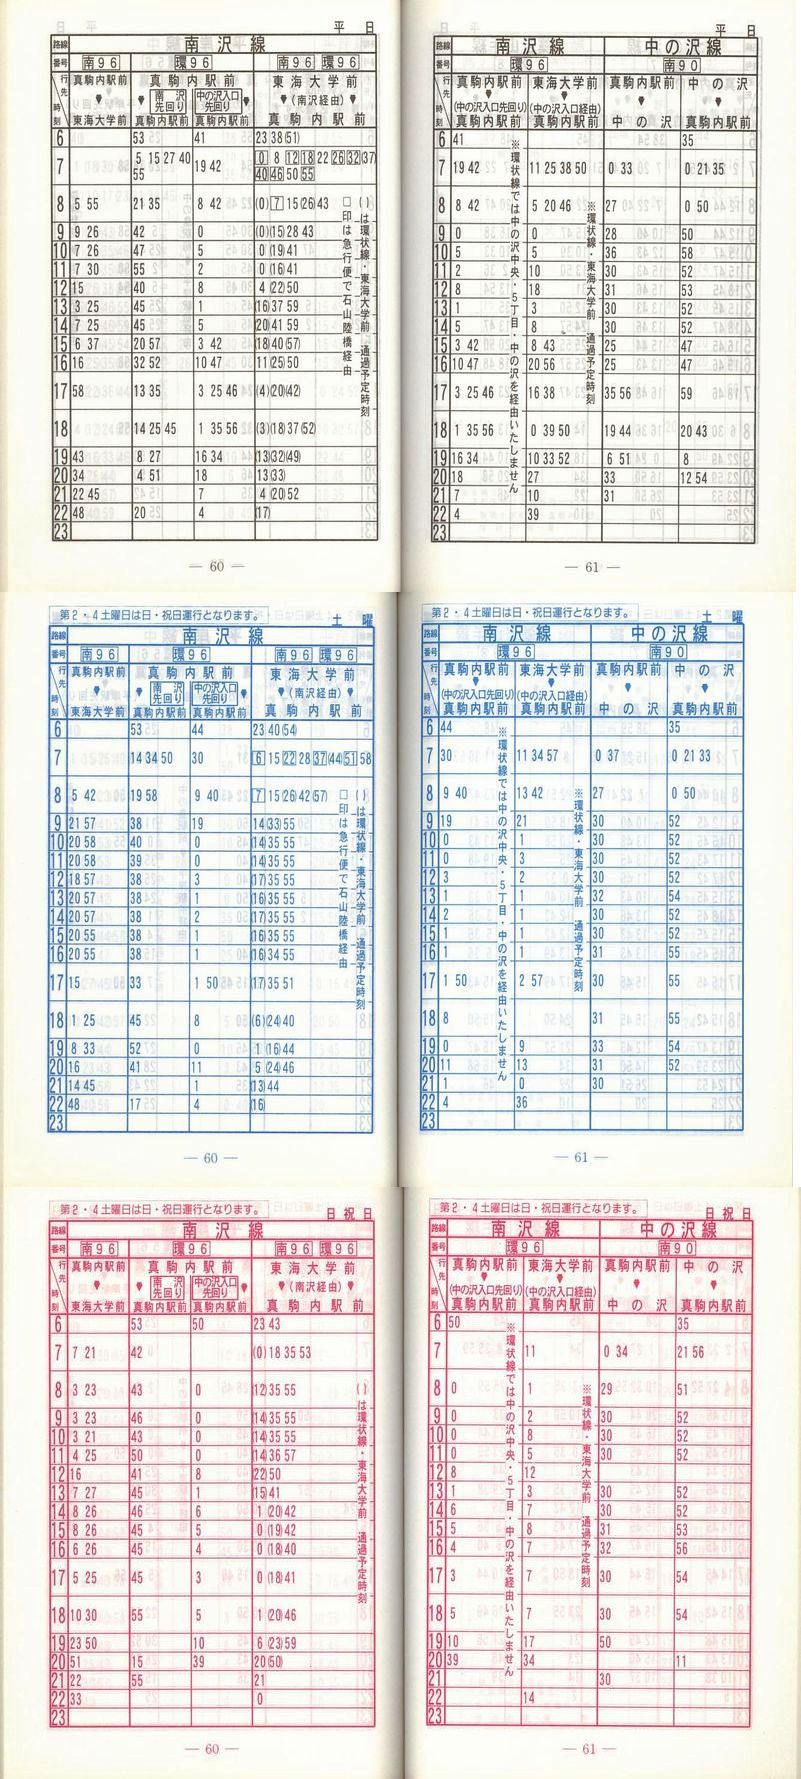 平 日
路線 南沢線
番号 南96 環96 南96 環96
行先 真駒内駅前 真駒内駅前 東海大学前
南沢先回り 中の沢入口先回り (南沢経由)
時刻 東海大学前 真駒内駅前 真駒内駅前 真駒内駅前
6 53 41 23 38 (51)
7 5 15 27 40 55 19 42 0 8 12 18 22 26 32 37 40 46 50 55
8 5 55 21 35 8 42 (0) 7 15 (26) 43
9 9 26 42 0 (0) (15) 28 43
10 7 26 47 5 0 (19) 41
11 7 30 55 2 0 (16) 41
12 15 40 8 4 (22) 50
13 3 25 45 1 (16) 37 59
14 7 25 45 5 (20) 41 59
15 6 37 20 57 3 42 (18) 40 (57)
16 16 32 52 10 47 11 (25) 50
17 58 13 35 3 25 46 (4) (20) (42)
18 14 25 45 1 35 56 (3) (18) 37 (52)
19 43 8 27 16 34 (13) (32) (49)
20 34 4 51 18 13 (33)
21 22 45 7 4 (20) 52
22 48 20 4 (17)
23
□印は急行便で石山陸橋経由
( )は環状線・東海大学前 通過予定時刻
― 60 ―
平 日
路線 南沢線 中の沢線
番号 環96 南90
行先 真駒内駅前 東海大学前 真駒内駅前 中の沢
(中の沢入口先回り) (中の沢入口経由)
時刻 真駒内駅前 真駒内駅前 中の沢 真駒内駅前
6 41 35
7 19 42 11 25 38 50 0 33 0 21 35
8 8 42 5 20 46 27 0 50
9 0 0 28 50
10 5 5 36 58
11 2 10 30 52
12 8 18 31 53
13 1 3 30 52
14 5 8 30 52
15 3 42 8 43 25 47
16 10 47 20 56 25 47
17 3 25 46 16 38 35 56 59
18 1 35 56 0 39 50 19 44 20 43
19 16 34 10 33 52 6 51 8
20 18 27 33 12 54
21 7 10 31
22 4 39
23
※環状線では中の沢中央・5丁目・中の沢を経由いたしません
※環状線・東海大学前 通過予定時刻
― 61 ―
第2・4土曜日は日・祝日運行となります。
土 曜
路線 南沢線
番号 南96 環96 南96 環96
行先 真駒内駅前 真駒内駅前 東海大学前
南沢先回り 中の沢入口先回り (南沢経由)
時刻 東海大学前 真駒内駅前 真駒内駅前 真駒内駅前
6 53 44 23 40 (54)
7 14 34 50 30 6 15 22 28 37 (44) 51 58
8 5 42 19 58 9 40 7 15 (26) 42 (57)
9 21 57 38 19 14 (33) 55
10 20 58 40 0 (14) 35 55
11 20 58 39 0 (14) 35 55
12 18 57 38 3 (17) 35 55
13 20 57 38 1 (16) 35 55
14 20 57 38 2 (17) 35 55
15 20 55 38 1 (16) 35 55
16 20 55 38 1 (16) 34 55
17 15 33 1 50 (17) 35 51
18 1 25 45 8 (6) (24) 40
19 8 33 52 0 1 (16) 44
20 16 41 28 11 5 (24) 46
21 14 45 1 (13) 44
22 48 17 4 (16)
23
□印は急行便で石山陸橋経由
( )は環状線・東海大学前 通過予定時刻
― 60 ―
第2・4土曜日は日・祝日運行となります。
土 曜
路線 南沢線 中の沢線
番号 環96 南90
行先 真駒内駅前 東海大学前 真駒内駅前 中の沢
(中の沢入口先回り) (中の沢入口経由)
時刻 真駒内駅前 真駒内駅前 中の沢 真駒内駅前
6 44 35
7 30 11 34 57 0 37 0 21 33
8 9 40 13 42 27 0 50
9 19 21 30 52
10 0 1 30 52
11 0 3 30 52
12 3 2 30 52
13 1 1 32 54
14 2 1 30 52
15 1 1 30 52
16 1 1 31 55
17 1 50 2 57 30 55
18 8 31 55
19 0 9 33 54
20 11 13 31 52
21 1 0 30
22 4 36
23
※環状線では中の沢中央・5丁目・中の沢を経由いたしません
※環状線・東海大学前 通過予定時刻
― 61 ―
第2・4土曜日は日・祝日運行となります。
日祝日
路線 南沢線
番号 南96 環96 南96 環96
行先 真駒内駅前 真駒内駅前 東海大学前
南沢先回り 中の沢入口先回り (南沢経由)
時刻 東海大学前 真駒内駅前 真駒内駅前 真駒内駅前
6 53 50 23 43
7 7 21 42 (0) 18 35 53
8 3 23 43 0 (12) 35 55
9 3 23 46 0 (14) 35 55
10 3 21 43 0 (14) 35 55
11 4 25 50 0 (14) 36 57
12 16 41 8 (22) 50
13 7 27 45 1 (15) 41
14 8 26 46 6 1 (20) 42
15 8 26 45 5 0 (19) 42
16 6 26 45 4 0 (18) 40
17 5 25 45 3 0 (18) 41
18 10 30 55 5 1 (20) 46
19 23 50 10 6 (23) 59
20 51 15 39 20 (50)
21 22 55 21
22 33 0
23
( )は環状線・東海大学前 通過予定時刻
― 60 ―
第2・4土曜日は日・祝日運行となります。
日祝日
路線 南沢線 中の沢線
番号 環96 南90
行先 真駒内駅前 東海大学前 真駒内駅前 中の沢
(中の沢入口先回り) (中の沢入口経由)
時刻 真駒内駅前 真駒内駅前 中の沢 真駒内駅前
6 50 35
7 11 0 34 21 56
8 0 1 29 51
9 0 2 30 52
10 0 8 30 52
11 0 5 30 52
12 8 12
13 1 3 30 52
14 6 7 30 52
15 5 8 31 53
16 4 7 32 56
17 3 7 30 54
18 5 7 30 54
19 10 17 50
20 39 34 11
21 30
22 14
23
※環状線では中の沢中央・5丁目・中の沢を経由いたしません
※環状線・東海大学前 通過予定時刻
― 61 ―